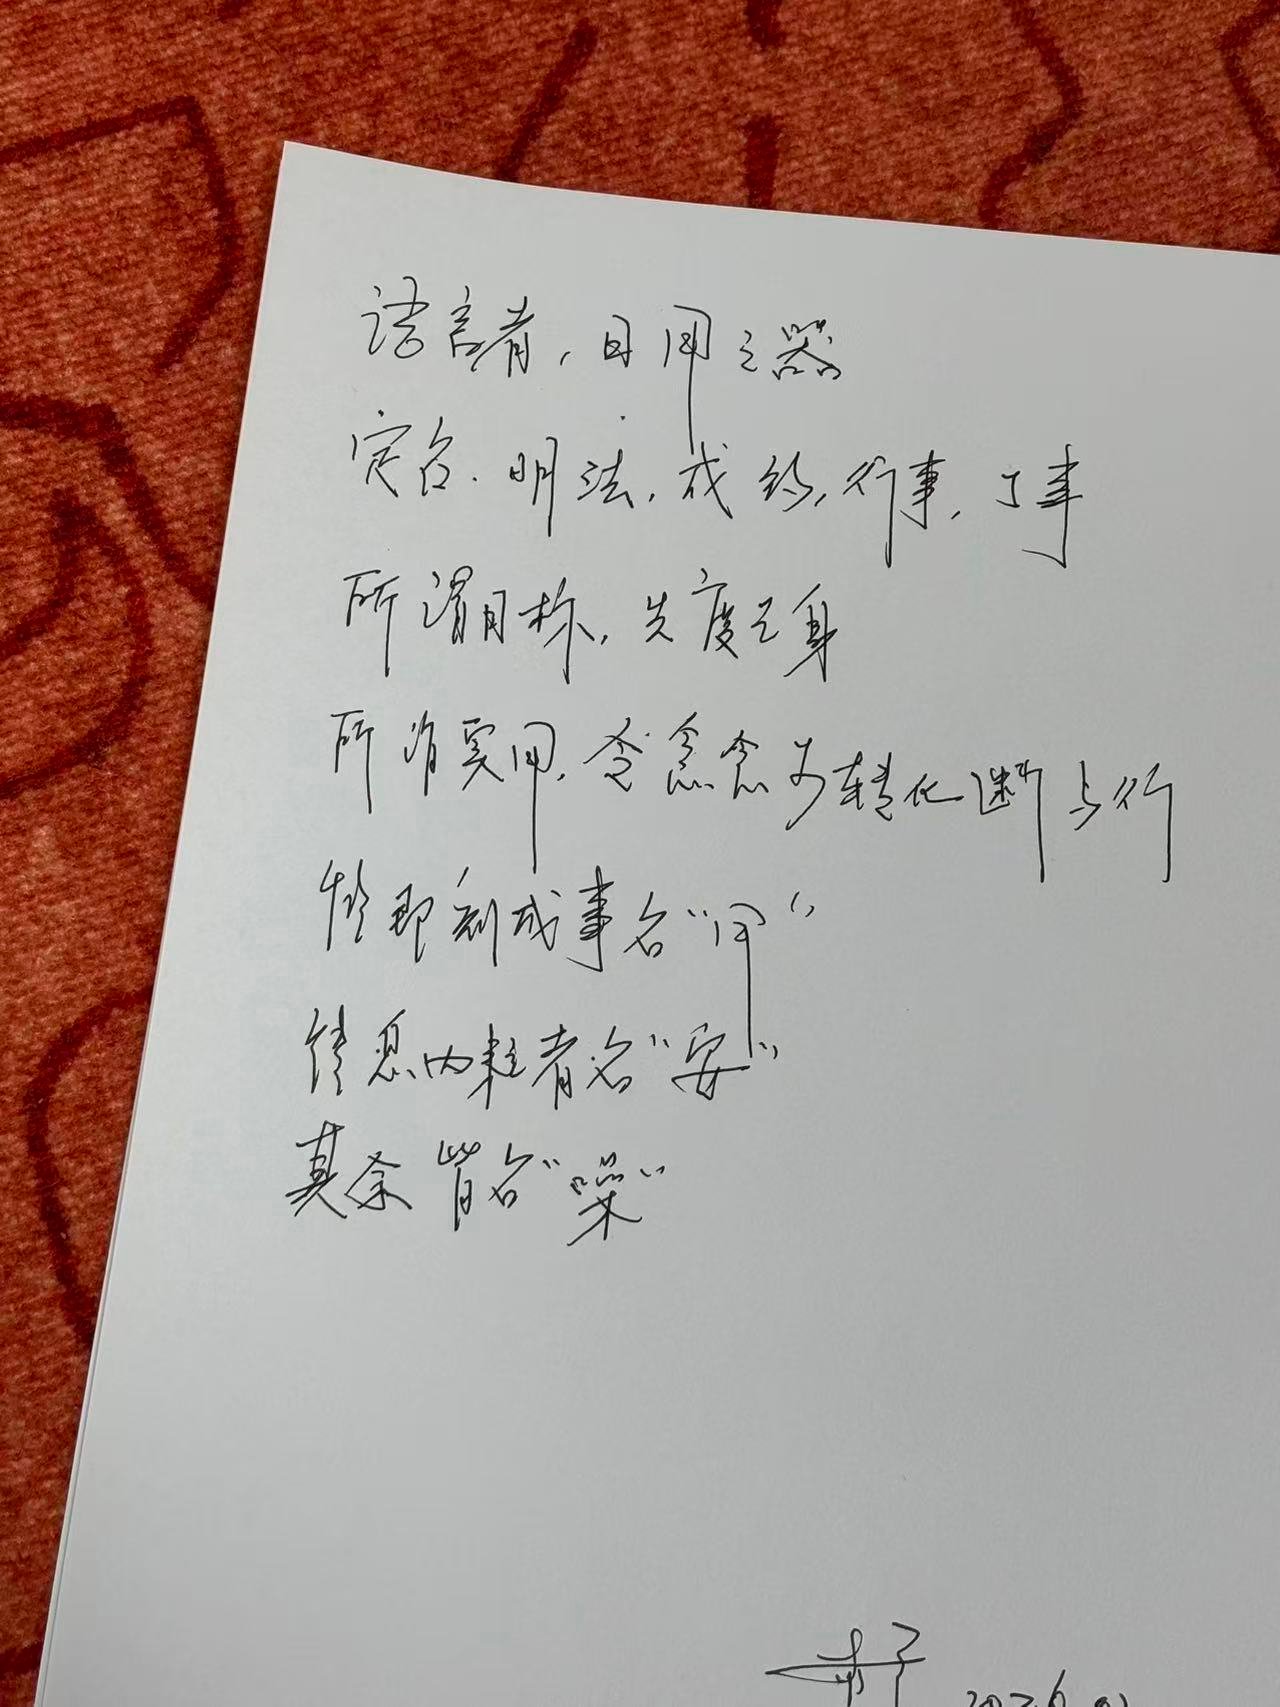 语言者，日用之器
定名．明法，成约，行事，了事
所谓目标，先度己身
所谓实用，令念念为转化断与行
能即刻成事名“用”
信息内耗者名“安”
其余皆名“噪”